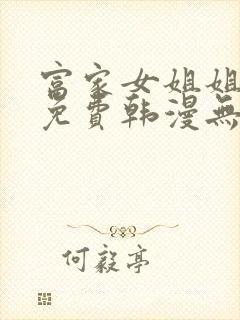 富家女姐姐
免費韩漫無
何毅亭